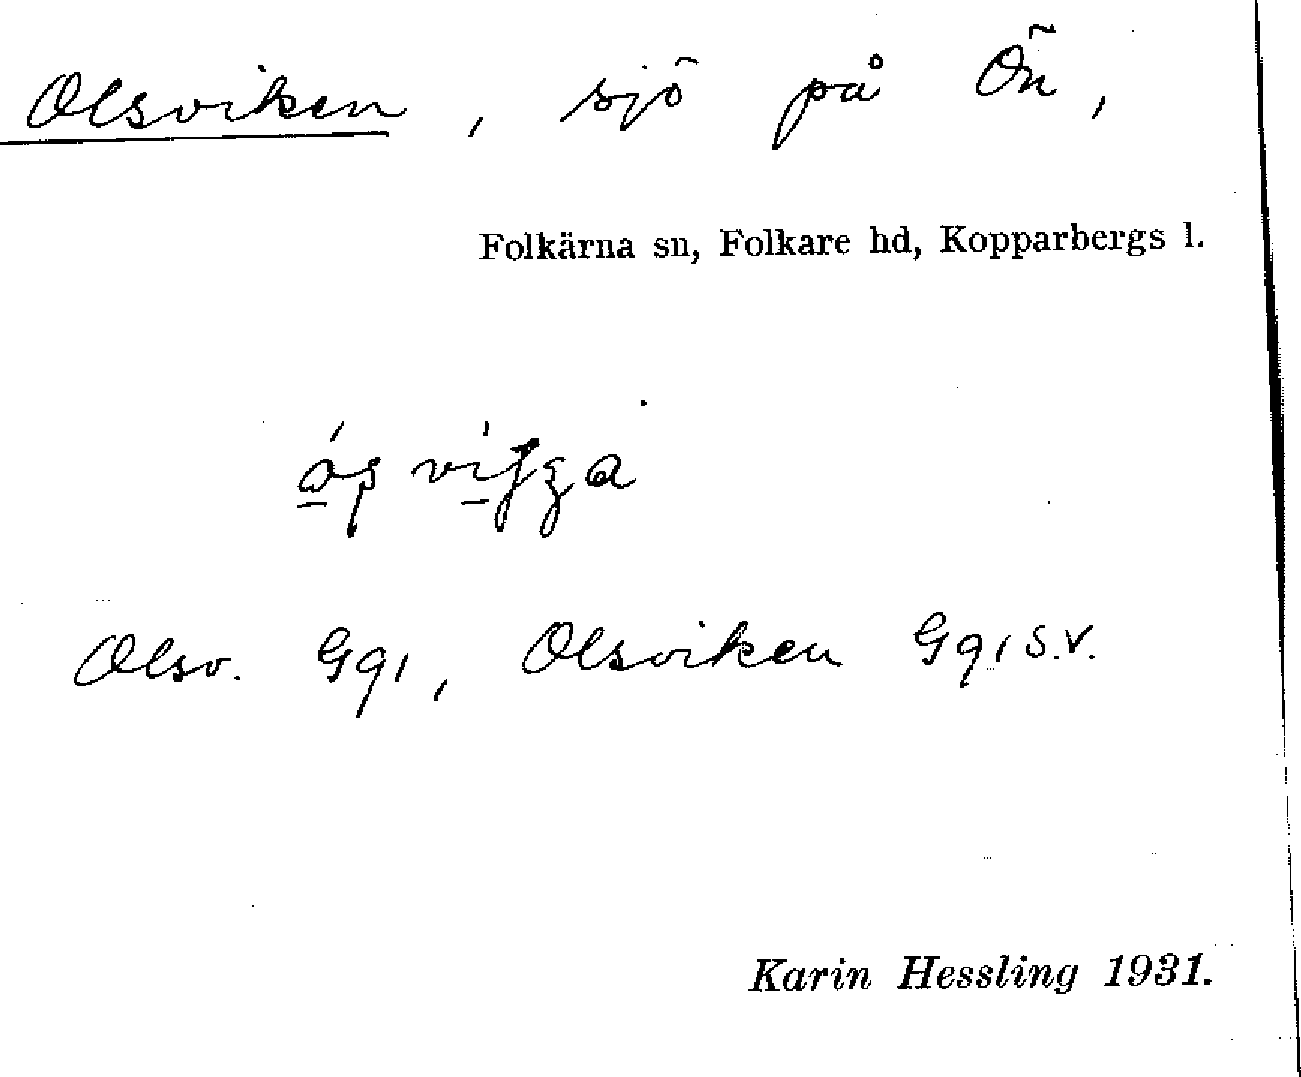 Olsviken, sjö på Ön,
Folkärna sn, Folkare hd, Kopparbergs l.
Olsv. Gq1, Olsviken Gq1 S.V.
Karin Hessling 1931.